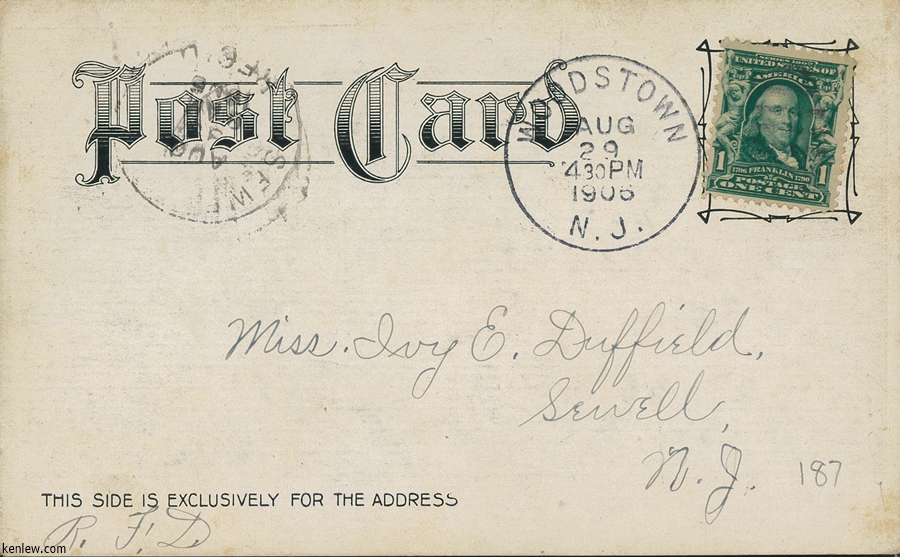 Post Card
WOODSTOWN
AUG
29
430PM
1906
N.J.
SERIES 1902
UNITED STATES OF
AMERICA
1706 FRANKLIN 1790
1 POSTAGE 1
ONE CENT
Miss. Ivy E. Duffield,
Sewell,
N.J.
187
THIS SIDE IS EXCLUSIVELY FOR THE ADDRESS
R. F. D
kenlew.com